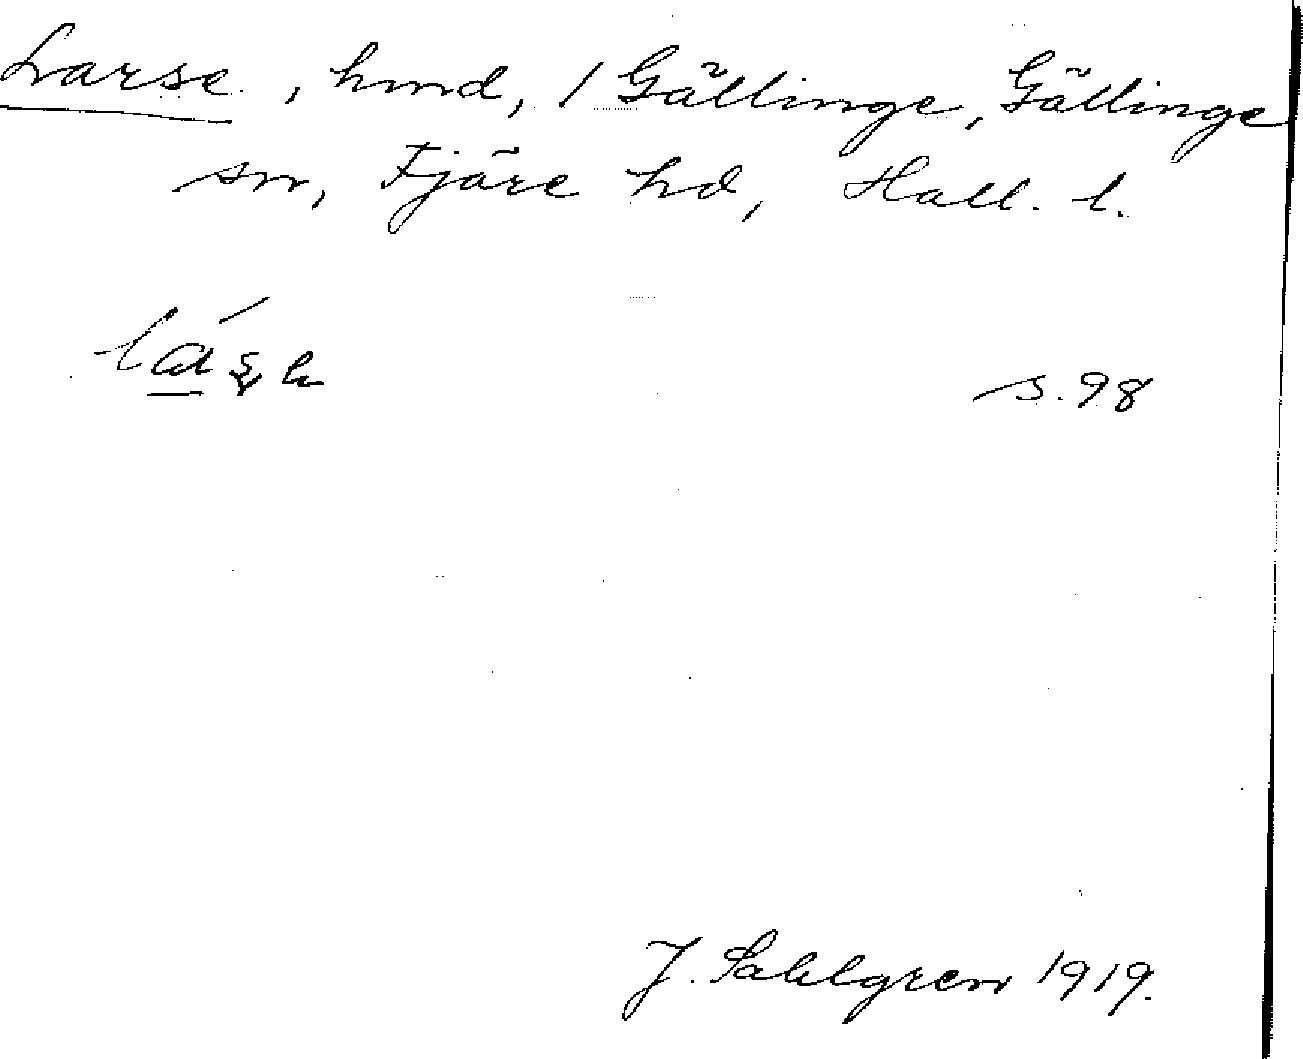 Larse, hmd, 1 Gällinge, Gällinge
sn, Fjäre hd, Hall. l.
s. 98
J. Sahlgren 1919.